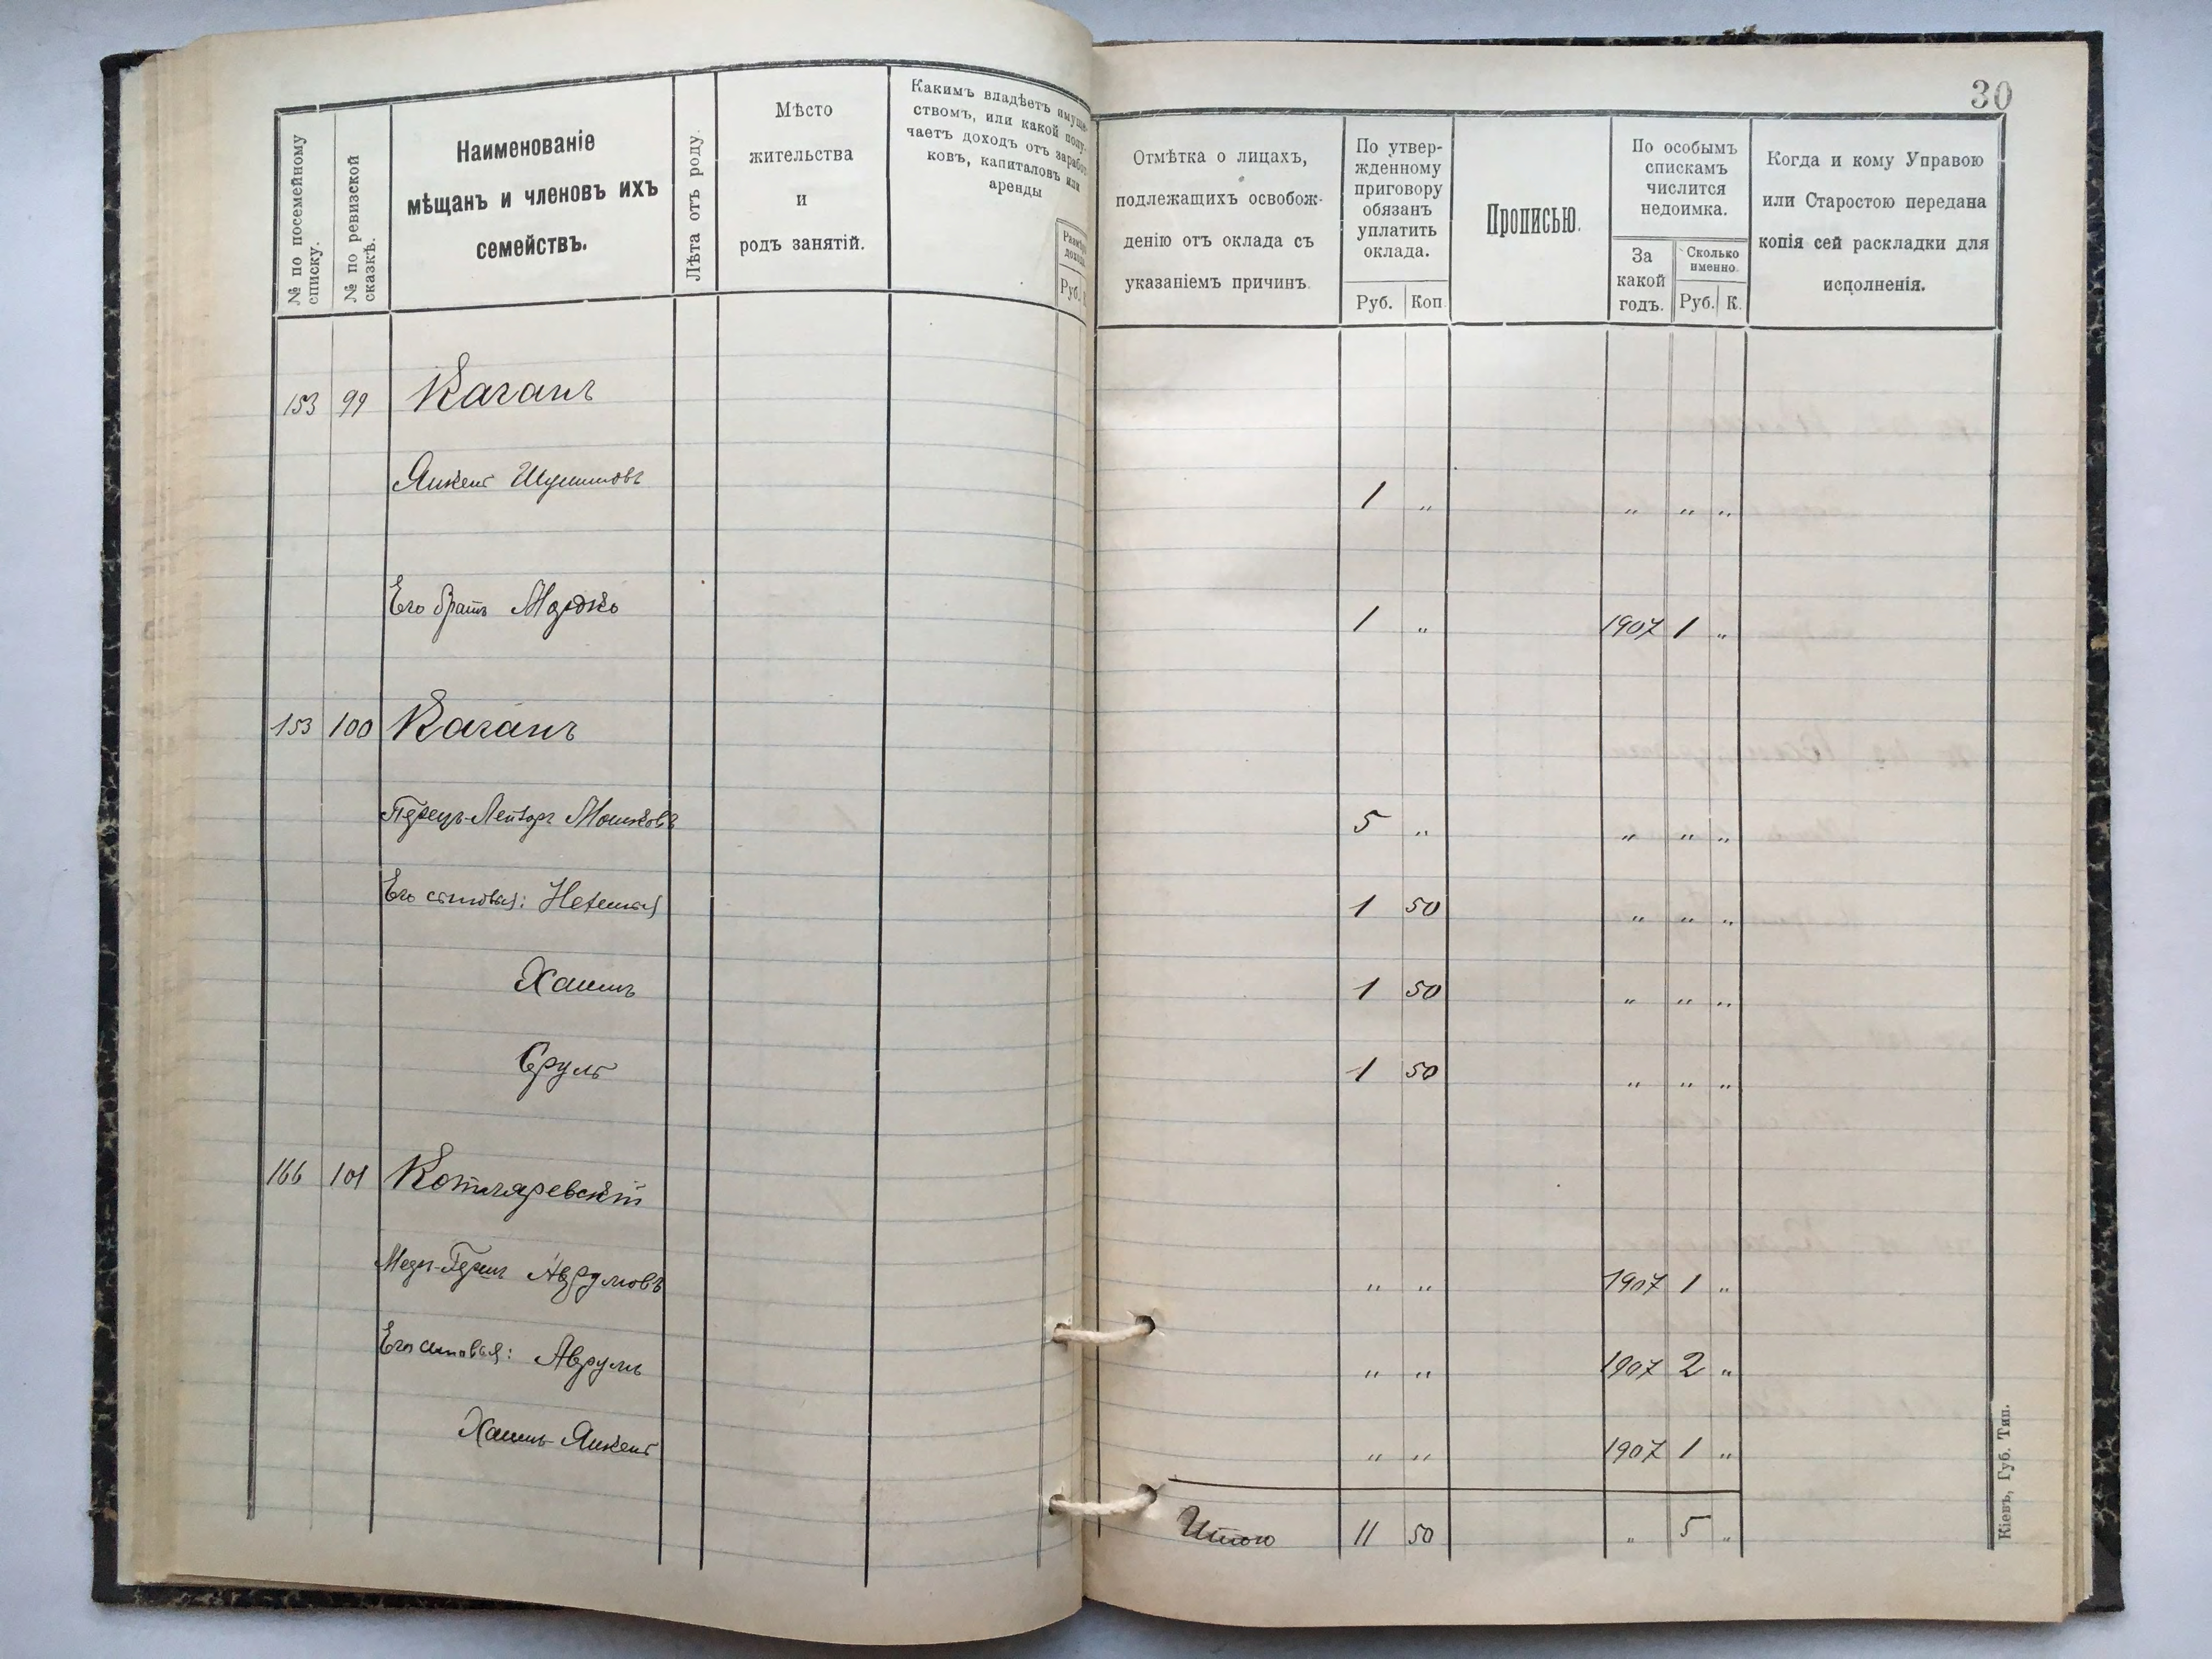 30
№ по посемейному
списку.
№ по ревизской
сказкѣ.
Наименованіе
мѣщанъ и членовъ ихъ
семействъ.
Лѣта отъ роду.
Мѣсто
жительства
и
родъ занятій.
Какимъ владѣетъ имуще-
ствомъ, или какой полу-
чаетъ доходъ отъ заработ-
ковъ, капиталовъ или
аренды
Размѣръ
дохода
Руб.
Отмѣтка о лицахъ,
подлежащихъ освобож-
денію отъ оклада съ
указаніемъ причинъ.
По утвер-
жденному
приговору
обязанъ
уплатить
оклада.
Руб. Коп.
Прописью.
По особымъ
спискамъ
числится
недоимка.
За
какой
годъ.
Сколько
именно.
Руб. К.
Когда и кому Управою
или Старостою передана
копія сей раскладки для
исполненія.
153 99 Каганъ
Янкель Шулимовъ 1 „ „ „ „
Его братъ Мордко 1 „ 1907 1 „
153 100 Каганъ
Перецъ-Лейзоръ Мошковъ 5 „ „ „ „
Его сыновья: Нехемья 1 50 „ „ „
Хаимъ 1 50 „ „ „
Сруль 1 50 „ „ „
166 101 Котляревскій
Аврумовъ „ „ 1907 1 „
Его сыновья: Аврумъ „ „ 1907 2 „
Хаимъ-Янкель „ „ 1907 1 „
Итого 11 50 „ 5 „
Кіевъ, Губ. Тип.